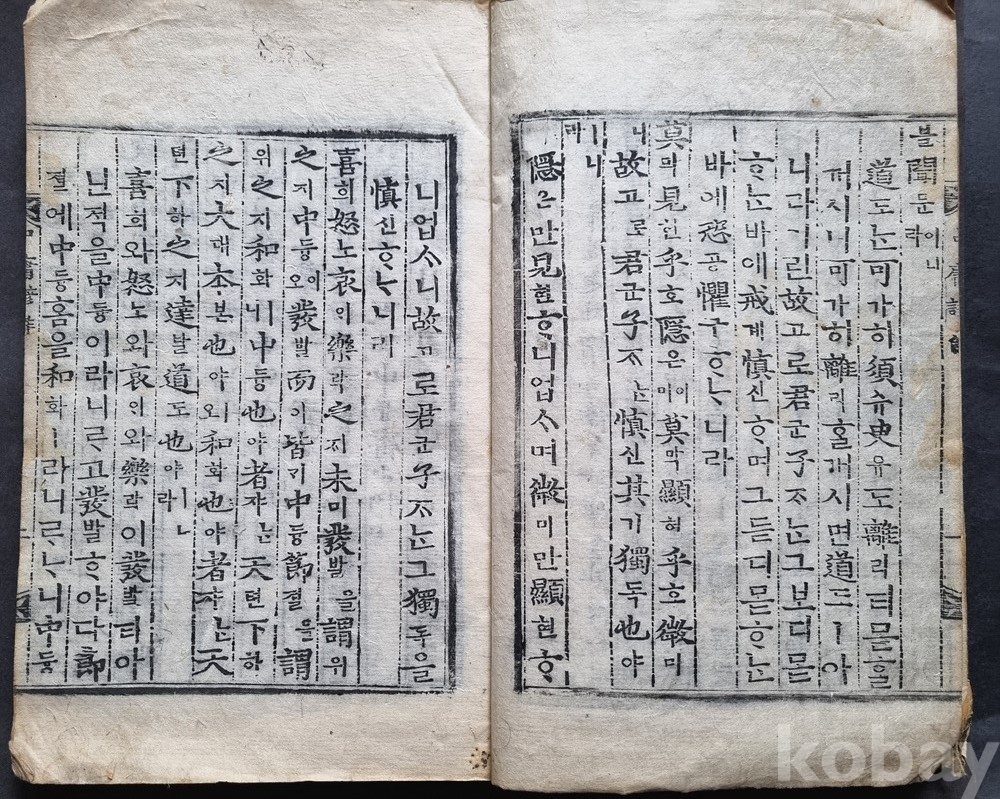 블聞문이니라
道도ᄂᆞᆫ可가히須슈臾유도離리티몯ᄒᆞᆯ
꺼시니可가히離리ᄒᆞᆯ개시면道도ㅣ아
니다이런故고로君군子ᄌᆞᄂᆞᆫ그보디몯
ᄒᆞᄂᆞᆫ바애戒계慎신ᄒᆞ며그듣디몯ᄒᆞᄂᆞᆫ
바에恐공懼구ᄒᆞᄂᆞ니라
莫막見현乎호隱은이며莫막顯현乎호微미
니故고로君군子ᄌᆞᄂᆞᆫ慎신其기獨독也야
ㅣ니
隱은만見현ᄒᆞ니업스며微미만顯현ᄒᆞ
니업스니故고로君군子ᄌᆞᄂᆞᆫ그獨독을
慎신ᄒᆞᄂᆞ니라
喜희怒노哀ᄋᆡ樂락之지未미發발을謂위
之지中듕이오發발而이皆ᄀᆡ中듕節졀을謂
위之지和화ㅣ니中듕也야者쟈ᄂᆞᆫ天텬下하
之지大대本본也야ㅣ오和화也야者쟈ᄂᆞᆫ天
텬下하之지達달道도也야ㅣ니라
喜희와怒노와哀ᄋᆡ와樂락이發발티아
닌적을中듕이라니ᄅᆞ고發발ᄒᆞ야다節
졀에中듕홈을和화ㅣ라니ᄅᆞᄂᆞ니中듕
kobay